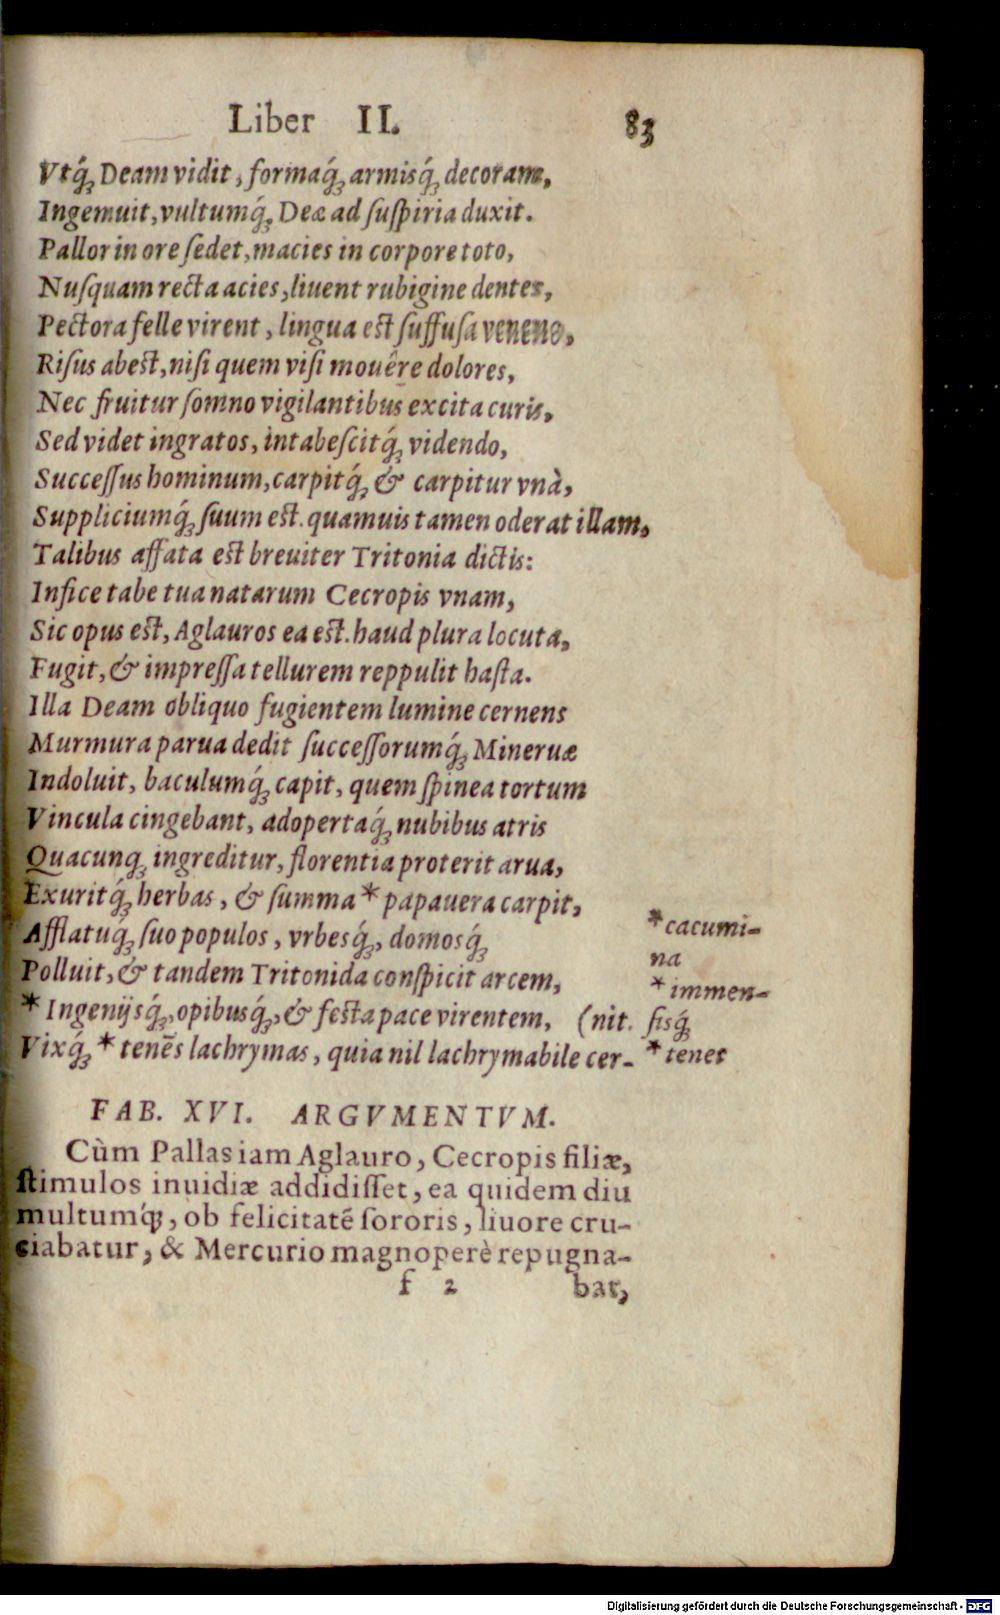 Liber II. 83
Vtq́; Deam vidit, formaq́; armisq́; decoram,
Ingemuit, vultumq́; Deæ ad ſuſpiria duxit.
Pallor in ore ſedet, macies in corpore toto,
Nuſquam recta acies, liuent rubigine dentes,
Pectora felle virent, lingua est ſuffuſa veneno,
Riſus abest, niſi quem viſi mouêre dolores,
Nec fruitur ſomno vigilantibus excita curis,
Sed videt ingratos, intabeſcitq́; videndo,
Succeſſus hominum, carpitq́; & carpitur vnà,
Suppliciumq́; ſuum est. quamuis tamen oderat illam,
Talibus affata est breuiter Tritonia dictis:
Infice tabe tua natarum Cecropis vnam,
Sic opus est, Aglauros ea est. haud plura locuta,
Fugit, & impreſſa tellurem reppulit haſta.
Illa Deam obliquo fugientem lumine cernens
Murmura parua dedit ſucceſſorumq́; Mineruæ
Indoluit, baculumq́; capit, quem ſpinea tortum
Vincula cingebant, adopertaq́; nubibus atris
Quacunq; ingreditur, florentia proterit arua,
Exuritq́; herbas, & ſumma * papauera carpit,
Afflatuq́; ſuo populos, vrbesq́;, domosq́;
Polluit, & tandem Tritonida conſpicit arcem,
* Ingenijsq́;, opibusq́;, & feſta pace virentem, (nit.
Vixq́; * tenēs lachrymas, quia nil lachrymabile cer-
* cacumi-
na
* immen-
ſisq́;
* tenet
FAB. XVI. ARGVMENTVM.
Cùm Pallas iam Aglauro, Cecropis filiæ,
ſtimulos inuidiæ addidiſſet, ea quidem diu
multumq́;, ob felicitatē ſororis, liuore cru-
ciabatur, & Mercurio magnoperè repugna-
f 2 bat,
Digitalisierung gefördert durch die Deutsche Forschungsgemeinschaft - DFG